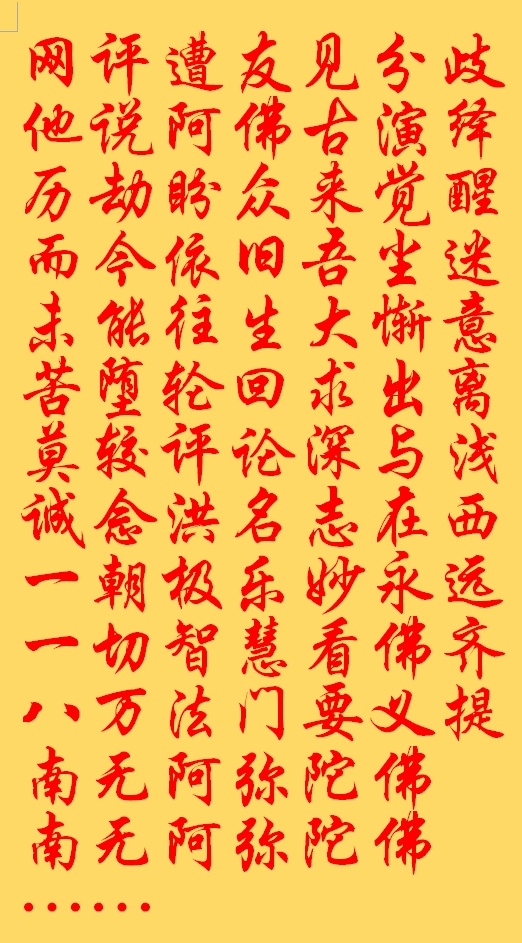 网评遭友见分歧
他说阿佛古演绎
历劫盼众来觉醒
而今依旧吾尘迷
未能往生大惭意
苦堕轮回求出离
莫较评论深与浅
诚念洪名志在西
一朝极乐妙永远
一切智慧看佛齐
八万法门要义提
南无阿弥陀佛
南无阿弥陀佛
······